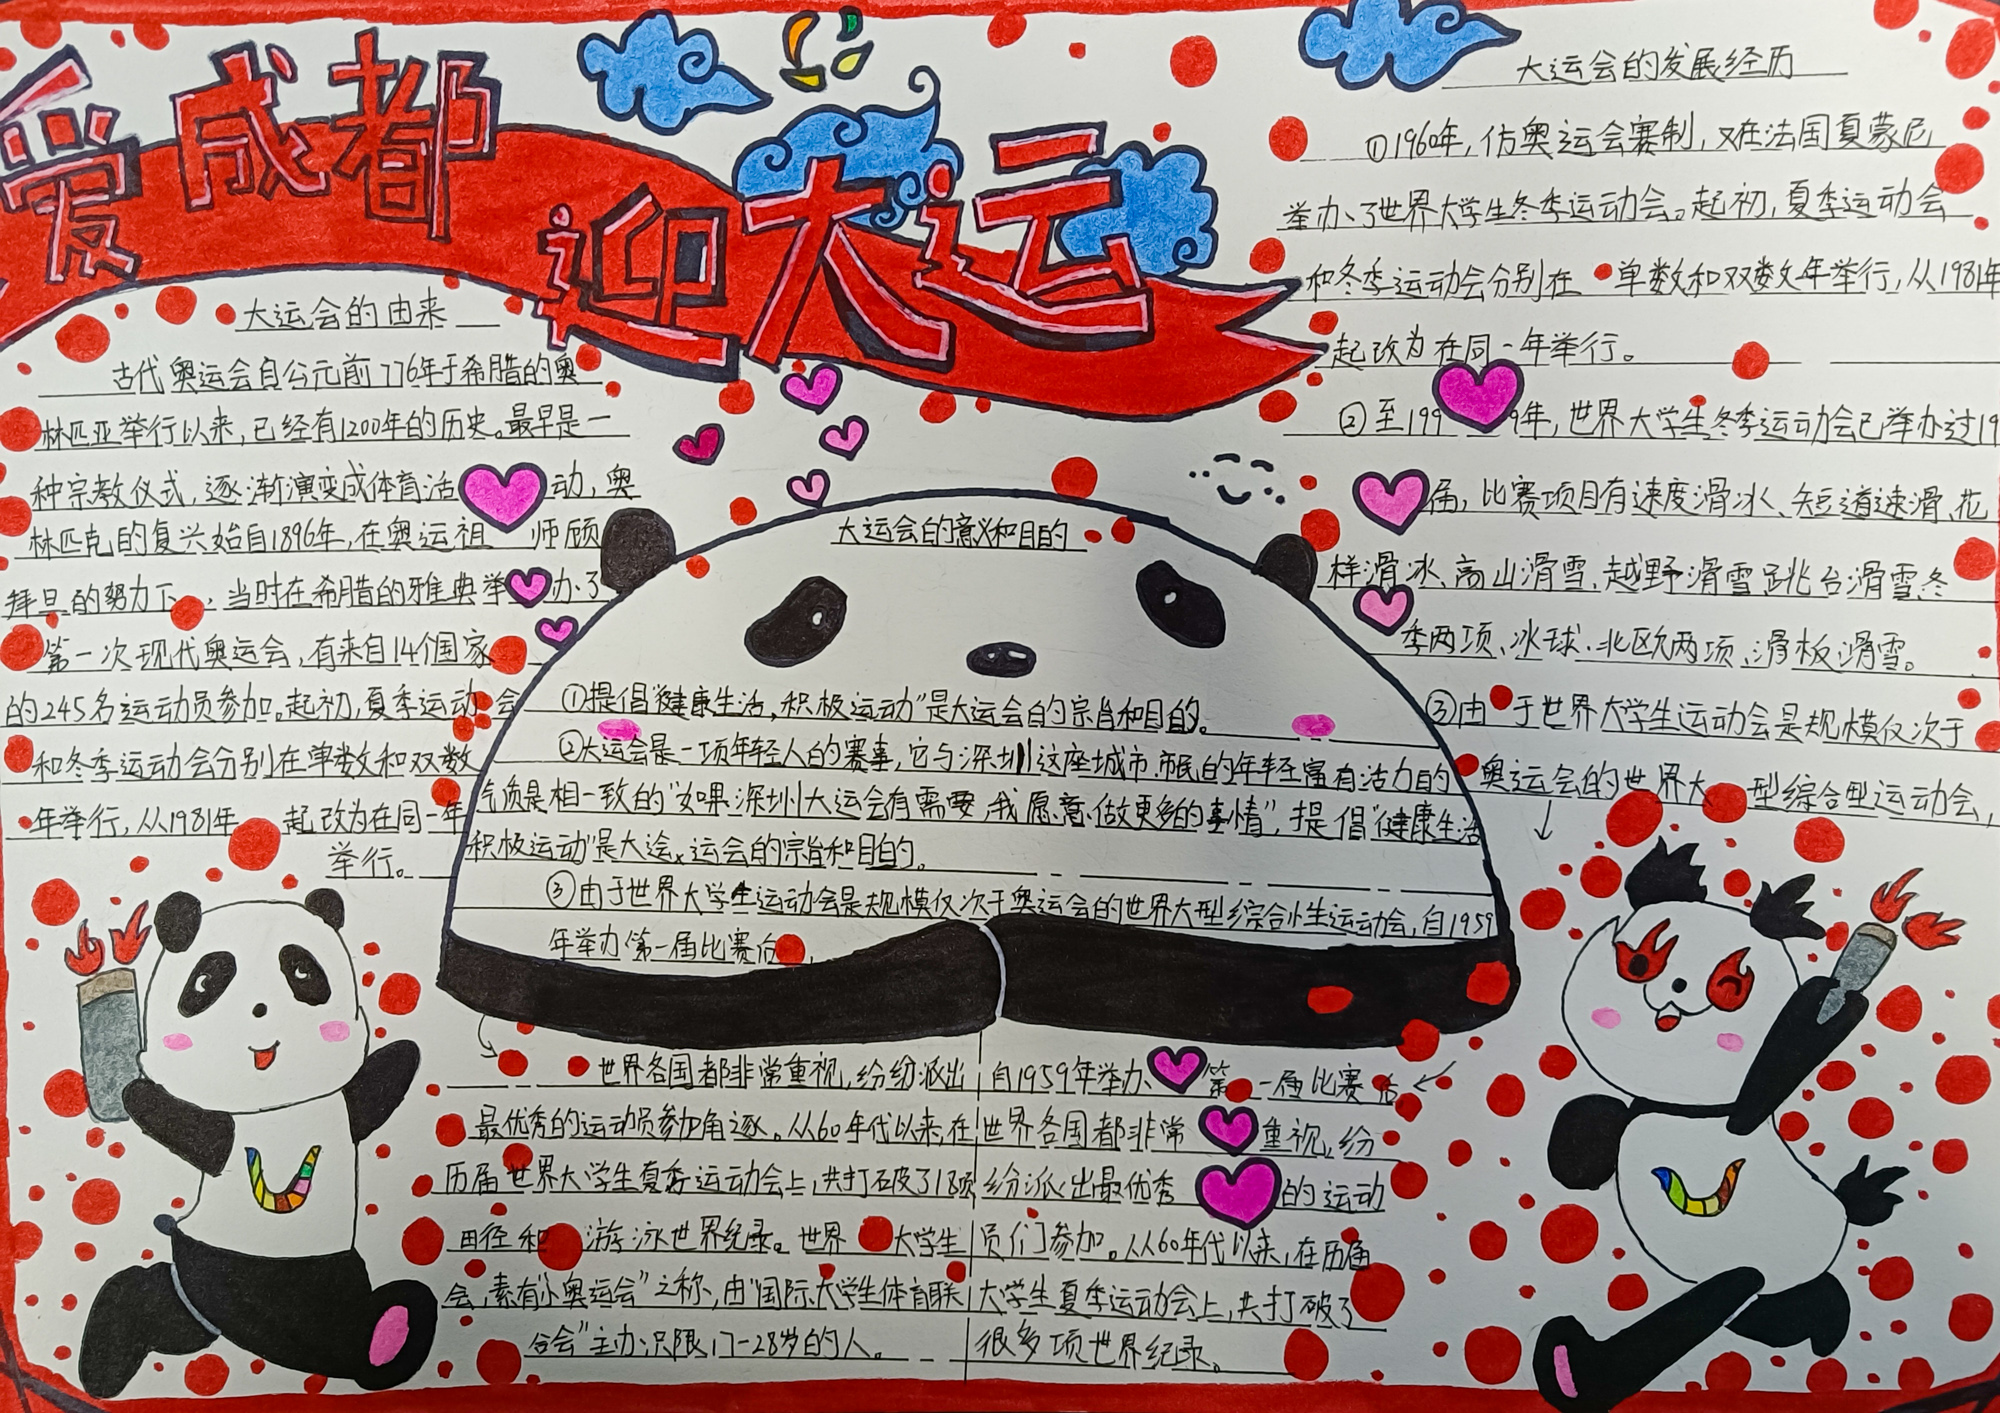 爱成都
迎大运
大运会的由来
古代奥运会自公元前776年于希腊的奥
林匹亚举行以来,已经有1200年的历史。最早是一
种宗教仪式,逐渐演变成体育活动,奥
林匹克的复兴始自1896年,在奥运祖师顾
拜旦的努力下、当时在希腊的雅典举办了
第一次现代奥运会,有来自14个国家
的245名运动员参加。起初,夏季运动会
和冬季运动会分别在单数和双数
年举行,从1981年起改为在同一年
举行。
大运会的意义和目的
①提倡“健康生活,积极运动”是大运会的宗旨和目的。
②大运会是一项年轻人的赛事,它与深圳这座城市市民的年轻富有活力的
气质是相一致的“如果深圳大运会有需要,我愿意做更多的事情”,提倡“健康生活
积极运动”是大运会的宗旨和目的。
③由于世界大学生运动会是规模仅次于奥运会的世界大型综合性运动会,自1959
年举办第一届比赛后,
世界各国都非常重视,纷纷派出
最优秀的运动员参加角逐。从60年代以来,在
历届世界大学生夏季运动会上,共打破了18项
田径和游泳世界纪录。世界大学生
会,素有“小奥运会”之称,由“国际大学生体育联
合会”主办,只限17-28岁的人。
大运会的发展经历
①1960年,仿奥运会赛制,又在法国夏蒙尼
举办了世界大学生冬季运动会。起初,夏季运动会
和冬季运动会分别在单数和双数年举行,从1981年
起改为在同一年举行。
②至1999年,世界大学生冬季运动会已举办过19
届,比赛项目有速度滑冰、短道速滑、花
样滑冰、高山滑雪、越野滑雪、跳台滑雪、冬
季两项、冰球、北欧两项、滑板滑雪。
③由于世界大学生运动会是规模仅次于
奥运会的世界大型综合型运动会,
自1959年举办第一届比赛后
世界各国都非常重视,纷
纷派出最优秀的运动
员们参加。从60年代以来,在历届
大学生夏季运动会上,共打破了
很多项世界纪录。